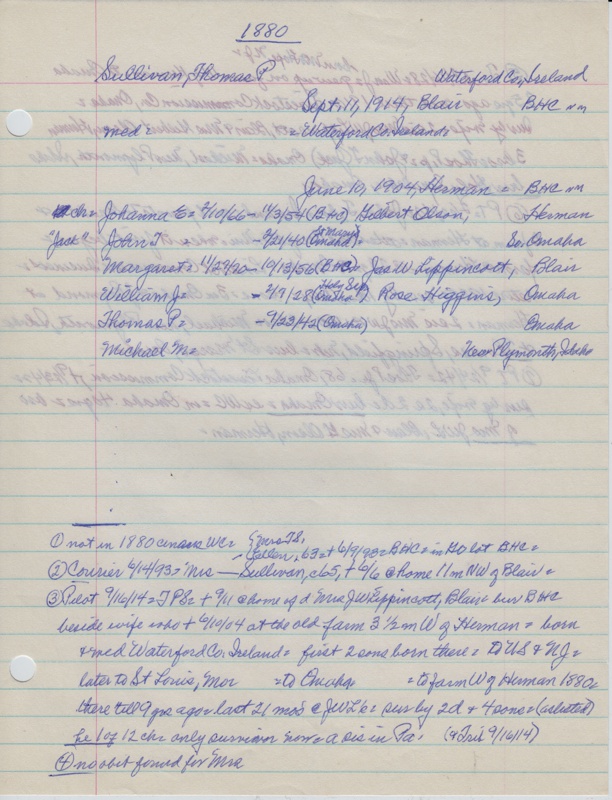 1880
Sullivan, Thomas P. Waterford Co, Ireland
Sept, 11, 1914, Blair BHC nm
med = = Waterford Co. Ireland =
June 10, 1904 Herman = BHC nm
ch = Johanna E = 2/10/66 - 11/3/54 (BHC) Gilbert Olson, Herman
"Jack" John T - 2/21/40 (St Marys Omaha) = So. Omaha
Margaret = 11/29/70 - 10/13/56 (BHC) Jas W Lippincott, Blair
William J = - 2/9/28 (Holy Sep Omaha) Rose Higgins, Omaha
Thomas P = - 9/23/42 (Omaha) Omaha
Michael M = New Plymouth, Idaho
① not in 1880 census WC = { Mrs TS,
- Ellen, 63 = + 6/9/93 = BHC = in HO lot BHC =
② Courier 6/14/93 = Mrs — Sullivan, c65, + 6/6 @ home 11 m NW of Blair =
③ Pilot 9/16/14 = TPS = + 9/11 @ home of d Mrs JW Lippincott, Blair = bur BHC
beside wife who + 6/10/04 at the old farm 3 1/2 m W of Herman = born
+ med Waterford Co. Ireland = first 2 sons born there = to US + NJ =
later to St Louis, Mo = to Omaha = to farm W of Herman 1880 =
there till 9 yrs ago = last 21 mos @ JWL's = sur by 2 d + 4 sons = (as listed)
he 1 of 12 ch = only survivor now = a sis in Pa. (& Trib 9/16/14)
④ no obit found for Mrs